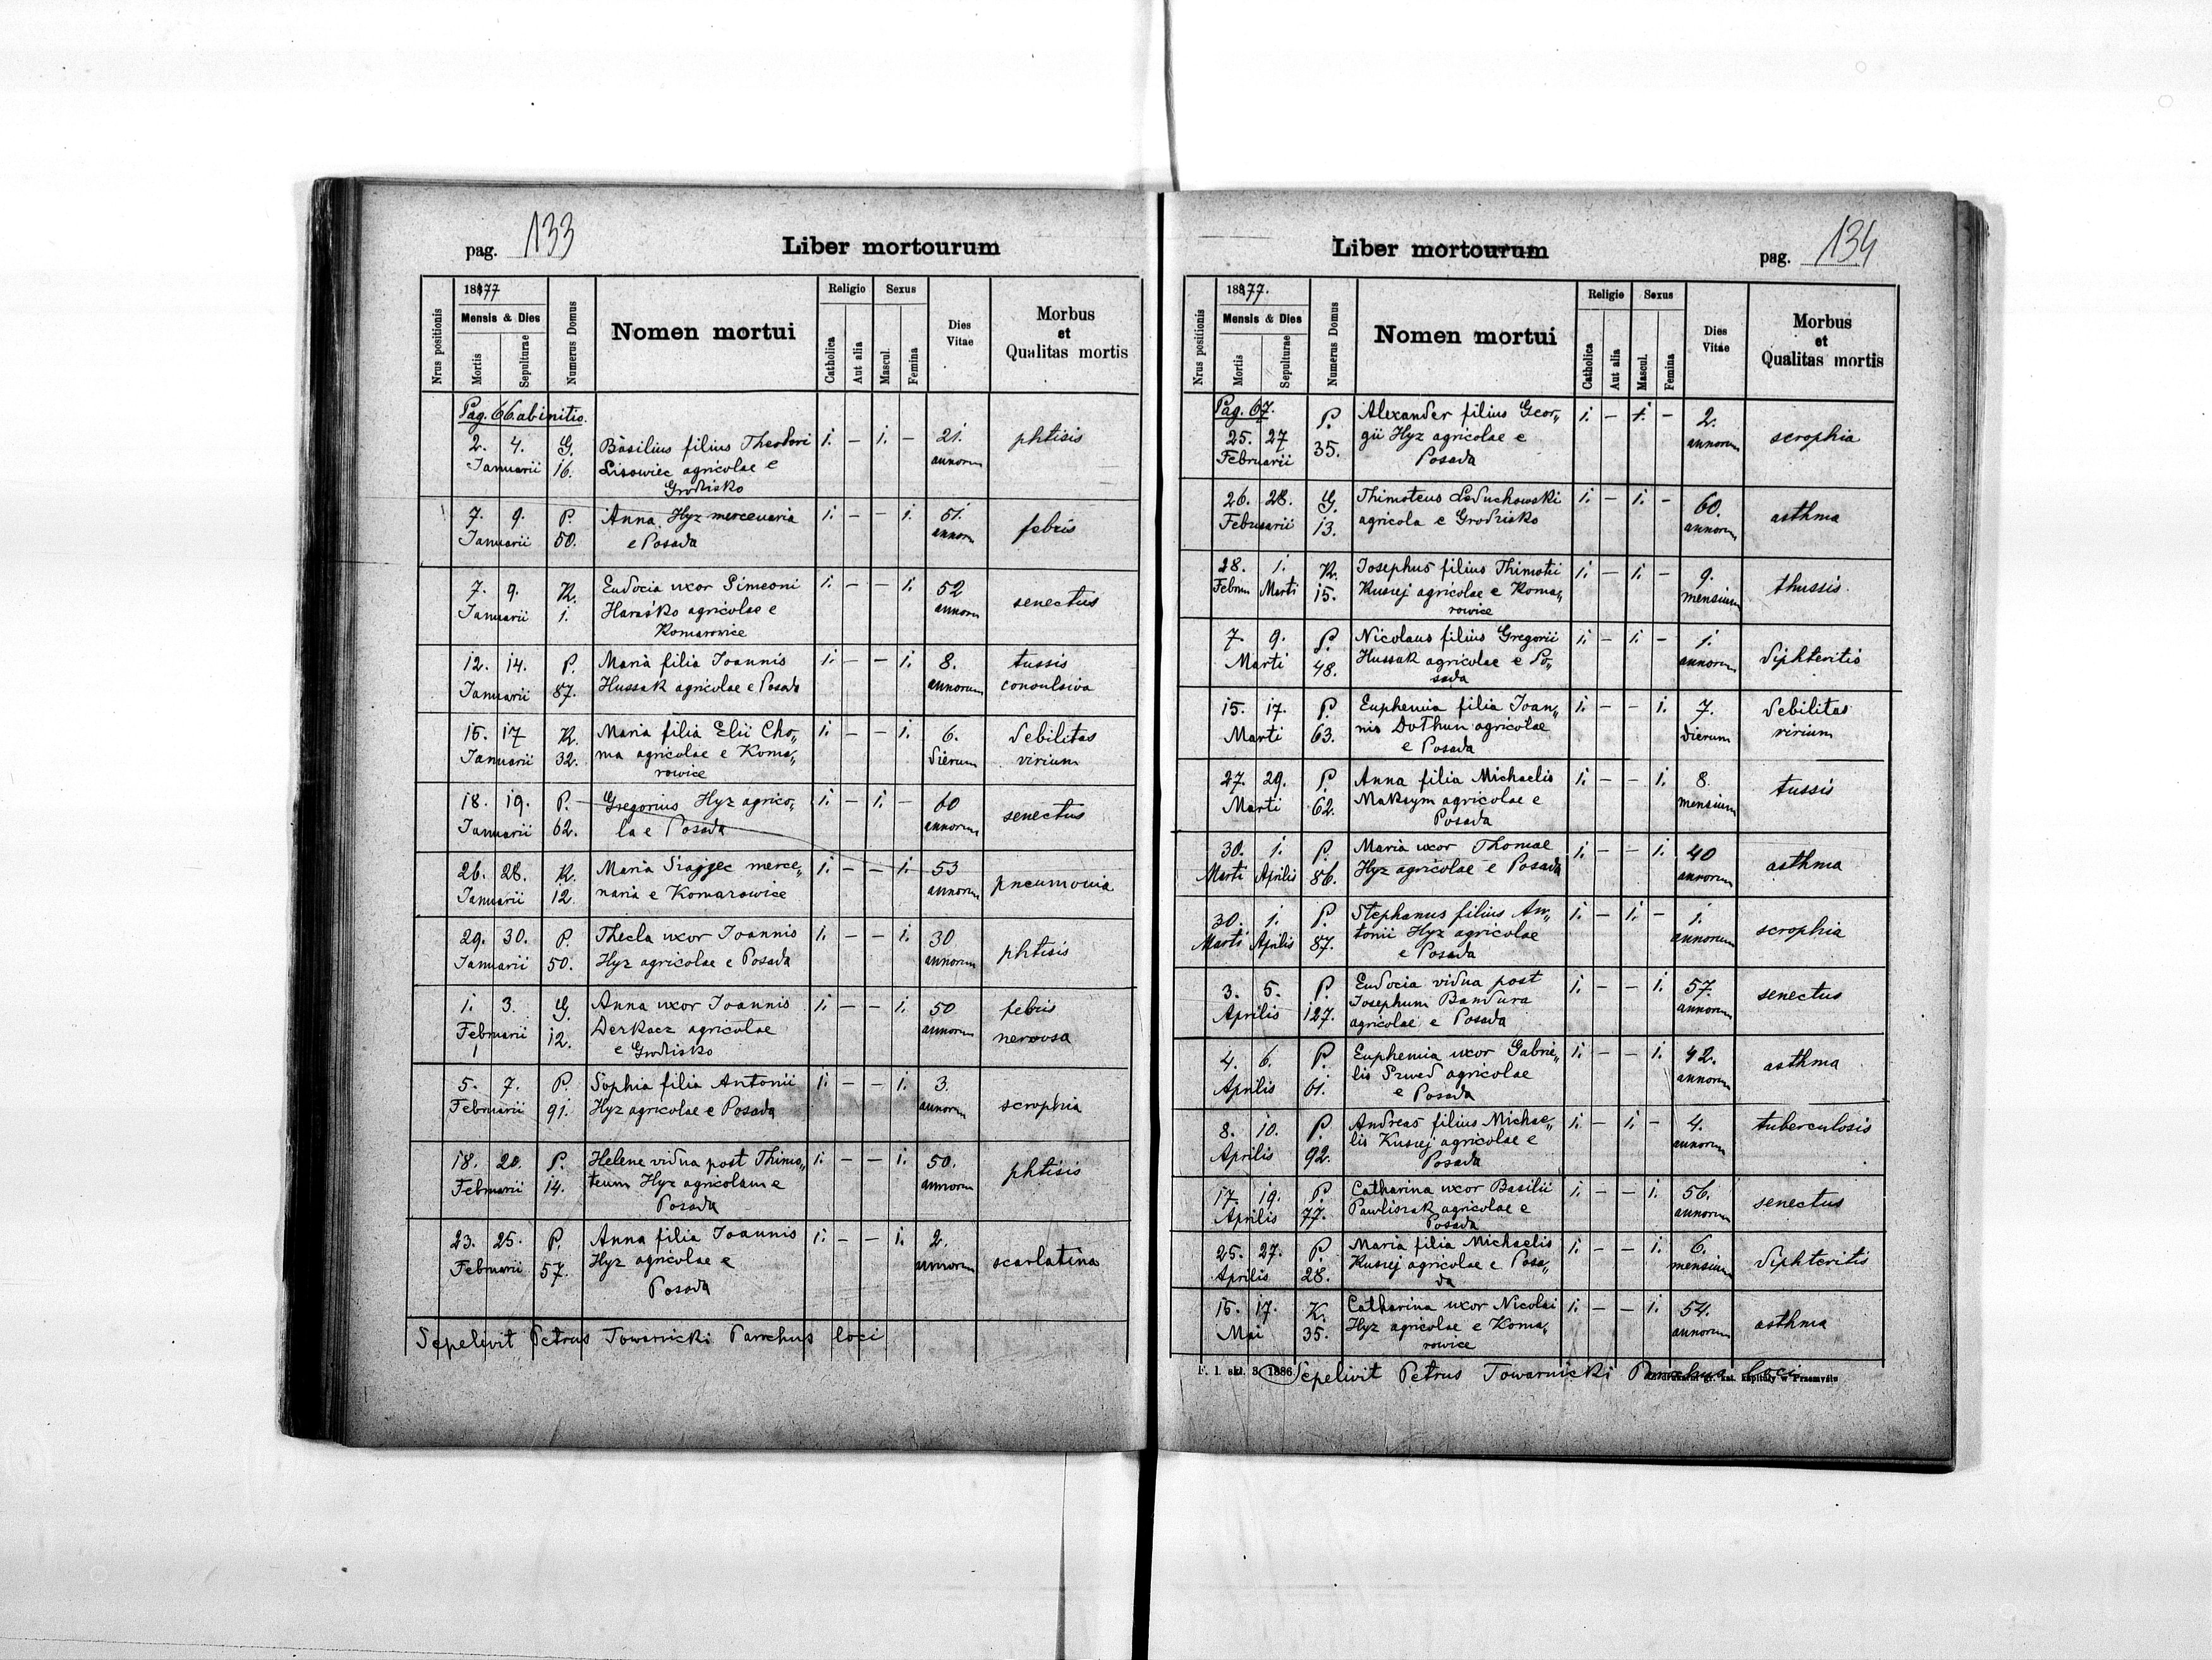 pag. 133
Liber mortourum
1877
Mensis & Dies
Nrus positionis
Mortis
Sepulturae
Numerus Domus
Nomen mortui
Religio
Catholica
Aut alia
Sexus
Mascul.
Femina
Dies
Vitae
Morbus
et
Qualitas mortis
Pag. 66 ab initio.
2. 4. G. Basilius filius Theodori 1. — 1. — 21. phtisis
Januarii 16. Lisowiec agricolae e annorum
Grodzisko
7. 9. P. Anna Hyz mercenaria 1. — — 1. 51. febris
Januarii 50. e Posada annorum
7. 9. K. Eudocia uxor Simeoni 1. — — 1. 52 senectus
Januarii 1. Haraśko agricolae e annorum
Komarowice
12. 14. P. Maria filia Joannis 1. — — 1. 8. tussis
Januarii 87. Hussak agricolae e Posada annorum convulsiva
15. 17 K. Maria filia Elii Cho„ 1. — — 1. 6. debilitas
Januarii 32. ma agricolae e Koma„ dierum virium
rowice
18. 19. P. Gregorius Hyz agrico„ 1. — 1. — 60 senectus
Januarii 62. la e Posada annorum
26. 28. K. Maria merce„ 1. — — 1. 53 pneumonia
Januarii 12. naria e Komarowice annorum
29. 30. P. Thecla uxor Joannis 1. — — 1. 30 phtisis
Januarii 50. Hyz agricolae e Posada annorum
1. 3. G. Anna uxor Joannis 1. — — 1. 50 febris
Februarii 12. Derkacz agricolae annorum nervosa
e Grodzisko
5. 7. P. Sophia filia Antonii 1. — — 1. 3. scrophia
Februarii 91. Hyz agricolae e Posada annorum
18. 20. P. Helene vidua post Thimo„ 1. — — 1. 50. phtisis
Februarii 14. teum Hyz agricolam e annorum
Posada
23. 25. P. Anna filia Joannis 1. — — 1. 2. scarlatina
Februarii 57. Hyz agricolae e annorum
Posada
Sepelivit Petrus Towarnicki Parochus loci
Liber mortourum
pag. 134
1877.
Mensis & Dies
Nrus positionis
Mortis
Sepulturae
Numerus Domus
Nomen mortui
Religio
Catholica
Aut alia
Sexus
Mascul.
Femina
Dies
Vitae
Morbus
et
Qualitas mortis
Pag. 67.
25. 27 P. Alexander filius Geor„ 1. — 1. — 2. scrophia
Februarii 35. gii Hyz agricolae e annorum
Posada
26. 28. G. Thimoteus Leduchowski 1. — 1. — 60. asthma
Februarii 13. agricola e Grodzisko annorum
28. 1. K. Josephus filius Thimotei 1. — 1. — 9. thussis
Febru Marti 15. Kusiej agricolae e Koma„ mensium
rowice
7. 9. P. Nicolaus filius Gregorii 1. — 1. — 1. diphteritis
Marti 48. Hussak agricolae e Po„ annorum
sada
15. 17. P. Euphemia filia Joan„ 1. — — 1. 7. debilitas
Marti 63. nis Dothun agricolae dierum virium
e Posada
27. 29. P. Anna filia Michaelis 1. — — 1. 8. tussis
Marti 62. Maksym agricolae e mensium
Posada
30. 1. P. Maria uxor Thomae 1. — — 1. 40 asthma
Marti Aprilis 86. Hyz agricolae e Posada annorum
30. 1. P. Stephanus filius An„ 1. — 1. — 1. scrophia
Marti Aprilis 87. tonii Hyz agricolae annorum
e Posada
3. 5. P. Eudocia vidua post 1. — — 1. 57. senectus
Aprilis 127. Josephum Bandura annorum
agricolae e Posada
4. 6. P. Euphemia uxor Gabrie„ 1. — — 1. 42. asthma
Aprilis 61. lis Szwed agricolae annorum
e Posada
8. 10. P. Andreas filius Michae„ 1. — 1. — 4. tuberculosis
Aprilis 92. lis Kusiej agricolae e annorum
Posada
17. 19. P. Catharina uxor Basilii 1. — — 1. 56. senectus
Aprilis 77. Pawliszak agricolae e annorum
Posada
25. 27. P. Maria filia Michaelis 1. — — 1. 6. diphteritis
Aprilis 28. Kusiej agricolae e Posa„ mensium
da
15. 17. K. Catharina uxor Nicolai 1. — — 1. 54. asthma
Mai 35. Hyz agricolae e Koma„ annorum
rowice
F. 1. skł. 3. 1886 Sepelivit Petrus Towarnicki Parochus loci
gr. kat. kapituły w Przemyślu